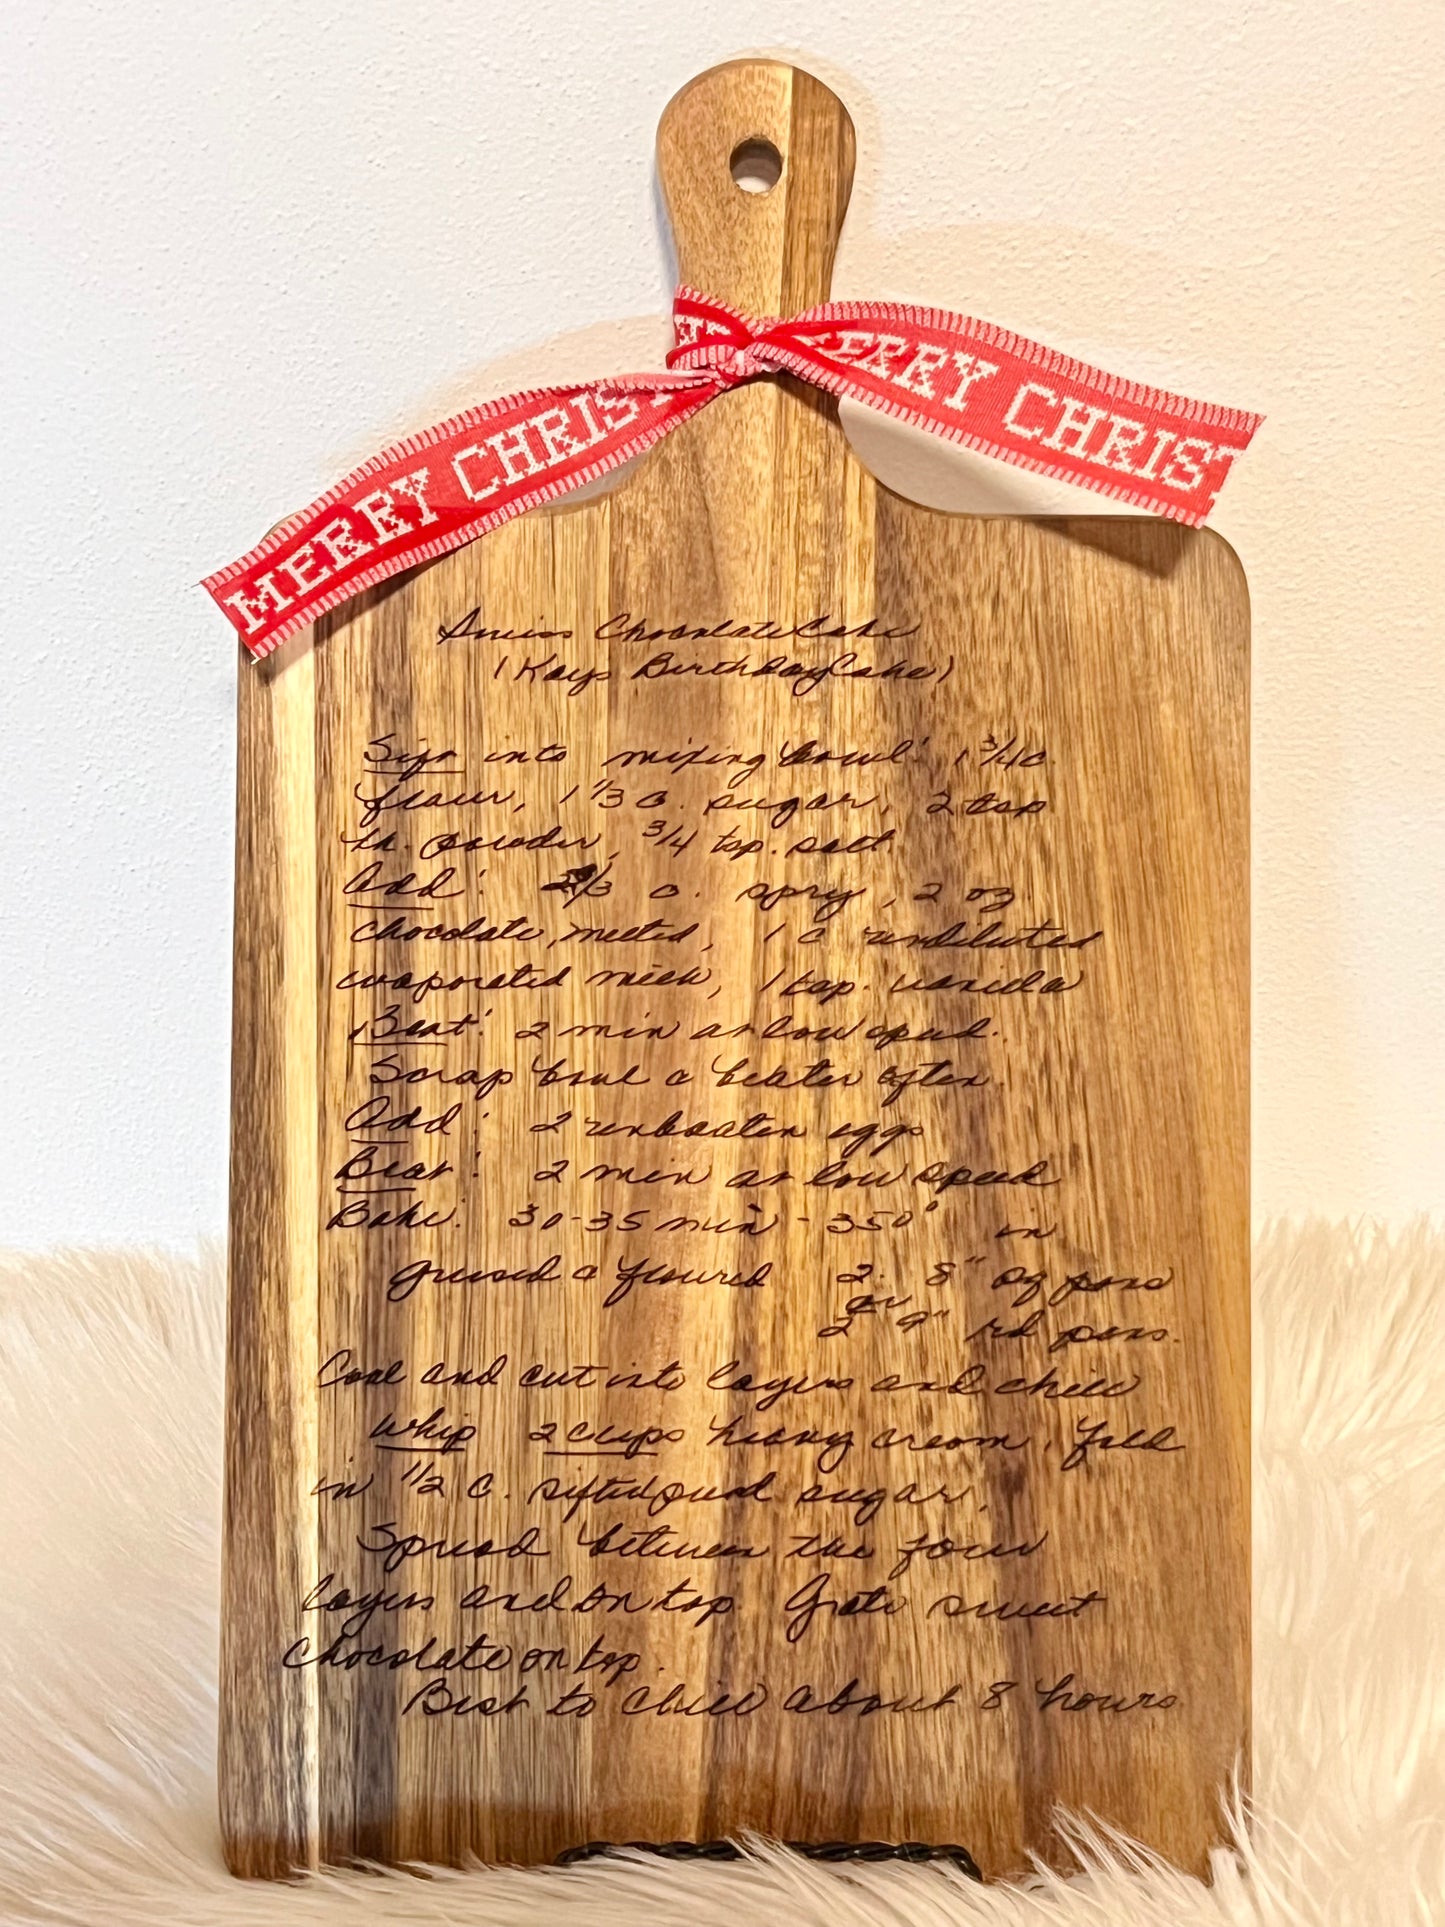 MERRY CHRIST
MERRY CHRIST
Swiss Chocolate Cake
(Kays Birthday Cake)
Sift into mixing bowl: 1 3/4 c
flour, 1 1/3 c. sugar, 2 tsp
powder, 3/4 tsp. salt.
Add: /3 c. spry, 2 oz
chocolate, melted, 1 c undiluted
evaporated milk, 1 tsp. vanilla
Beat: 2 min at low speed.
Scrap bowl & beater often.
Add: 2 unbeaten eggs
Beat: 2 min at low speed
Bake: 30-35 min - 350° in
greased & floured 2 8" sq pans
or
2 9" rd pans.
Cool and cut into layers and chill
Whip 2 cups heavy cream, fold
in 1/2 c. sifted powd sugar.
Spread between the four
layers and on top. Grate sweet
chocolate on top.
Best to chill about 8 hours